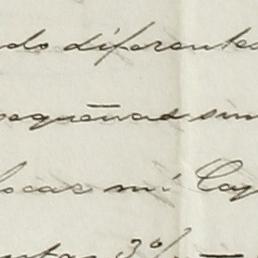 do diferentes
pequeñas sum
locar mi Cap
3%